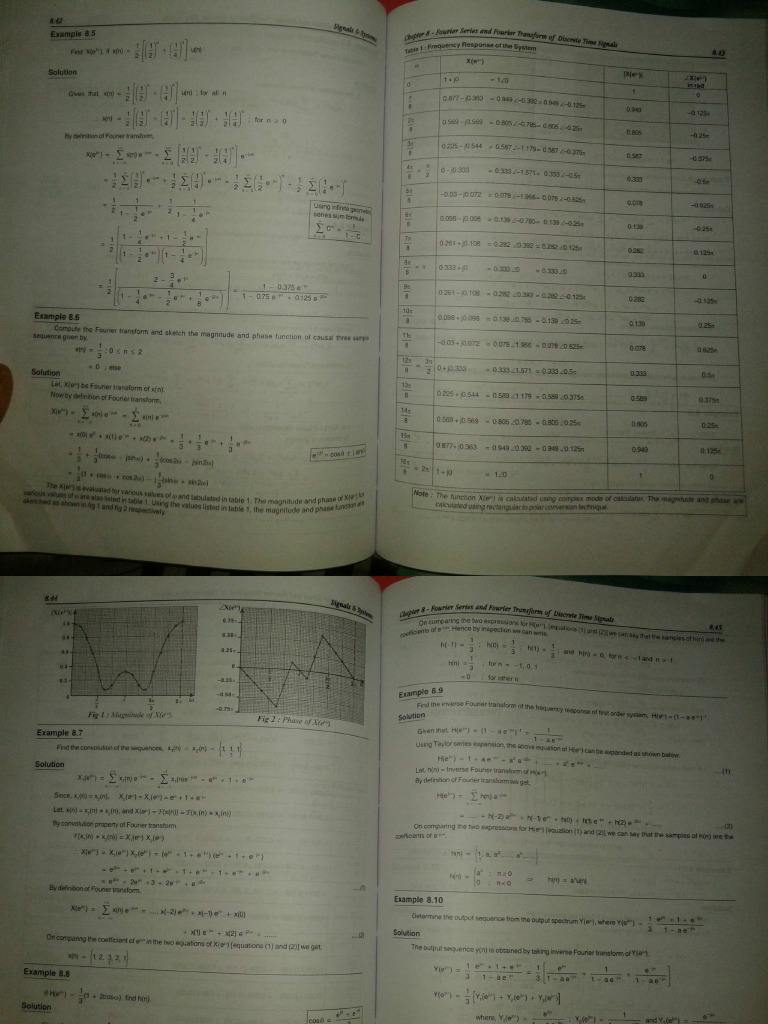 8.42
Signals & Systems
Example 8.5
Find X(e^jω), if x(n) = 1/2 [(1/2)^n + (1/4)^n] u(n)
Solution
Given that, x(n) = 1/2 [(1/2)^n + (1/4)^n] u(n) ; for all n
∴ x(n) = 1/2 [(1/2)^n + (1/4)^n] = 1/2 (1/2)^n + 1/2 (1/4)^n ; for n ≥ 0
By definition of Fourier transform,
Using infinite geometric
series sum formula
= 1/2 [(2 - 3/4 e^-jω) / (1 - 1/4 e^-jω - 1/2 e^-jω + 1/8 e^-j2ω)] = (1 - 0.375 e^-jω) / (1 - 0.75 e^-jω + 0.125 e^-j2ω)
Example 8.6
Compute the Fourier transform and sketch the magnitude and phase function of causal three sample
sequence given by,
x(n) = 1/3 ; 0 ≤ n ≤ 2
= 0 ; else
Solution
Let, X(e^jω) be Fourier transform of x(n).
Now by definition of Fourier transform,
= x(0) e^0 + x(1) e^-jω + x(2) e^-j2ω = 1/3 + 1/3 e^-jω + 1/3 e^-j2ω
= 1/3 + 1/3 (cosω - jsinω) + 1/3 (cos2ω - jsin2ω)
= 1/3 (1 + cosω + cos2ω) - j 1/3 (sinω + sin2ω)
The X(e^jω) is evaluated for various values of ω and tabulated in table 1. The magnitude and phase of X(e^jω) for
various values of ω are also listed in table 1. Using the values listed in table 1, the magnitude and phase function are
sketched as shown in fig 1 and fig 2 respectively.
Chapter 8 - Fourier Series and Fourier Transform of Discrete Time Signals
8.43
Table 1 : Frequency Response of the System
ω X(e^jω) |X(e^jω)| ∠X(e^jω) in rad
0 1 + j0 = 1∠0 1 0
π/8 0.877 - j0.363 = 0.949 ∠-0.392 = 0.949 ∠-0.125π 0.949 -0.125π
2π/8 0.569 - j0.569 = 0.805 ∠-0.785 = 0.805 ∠-0.25π 0.805 -0.25π
3π/8 0.225 - j0.544 = 0.587 ∠-1.179 = 0.587 ∠-0.375π 0.587 -0.375π
4π/8 = π/2 0 - j0.333 = 0.333 ∠-1.571 = 0.333 ∠-0.5π 0.333 -0.5π
5π/8 -0.03 - j0.072 = 0.078 ∠-1.966 = 0.078 ∠-0.625π 0.078 -0.625π
6π/8 0.098 - j0.098 = 0.139 ∠-0.785 = 0.139 ∠-0.25π 0.139 -0.25π
7π/8 0.261 + j0.108 = 0.282 ∠0.392 = 0.282 ∠0.125π 0.282 0.125π
8π/8 = π 0.333 + j0 = 0.333 ∠0 = 0.333 ∠0 0.333 0
9π/8 0.261 - j0.108 = 0.282 ∠-0.392 = 0.282 ∠-0.125π 0.282 -0.125π
10π/8 0.098 + j0.098 = 0.139 ∠0.785 = 0.139 ∠0.25π 0.139 0.25π
11π/8 -0.03 + j0.072 = 0.078 ∠1.966 = 0.078 ∠0.625π 0.078 0.625π
12π/8 = 3π/2 0 + j0.333 = 0.333 ∠1.571 = 0.333 ∠0.5π 0.333 0.5π
13π/8 0.225 + j0.544 = 0.589 ∠1.179 = 0.589 ∠0.375π 0.589 0.375π
14π/8 0.569 + j0.569 = 0.805 ∠0.785 = 0.805 ∠0.25π 0.805 0.25π
15π/8 0.877 + j0.363 = 0.949 ∠0.392 = 0.949 ∠0.125π 0.949 0.125π
16π/8 = 2π 1 + j0 = 1∠0 1 0
Note : The function X(e^jω) is calculated using complex mode of calculator. The magnitude and phase are
calculated using rectangular to polar conversion technique.
8.44
Signals & Systems
Fig 1 : Magnitude of X(e^jω).
Fig 2 : Phase of X(e^jω).
Example 8.7
Find the convolution of the sequences, x₁(n) = x₂(n) = {1, 1, 1}
Solution
Since, x₁(n) = x₂(n), X₂(e^jω) = X₁(e^jω) = e^jω + 1 + e^-jω
By convolution property of Fourier transform
X(e^jω) = X₁(e^jω) X₂(e^jω) = (e^jω + 1 + e^-jω) (e^jω + 1 + e^-jω)
= e^j2ω + 2e^jω + 3 + 2e^-jω + e^-j2ω .....(1)
By definition of Fourier transform,
+ x(1) e^-jω + x(2) e^-j2ω + ....... .....(2)
On comparing the coefficient of e^jω in the two equations of X(e^jω) [equations (1) and (2)] we get,
x(n) = {1, 2, 3, 2, 1}
Example 8.8
If H(e^jω) = 1/3 (1 + 2cosω), find h(n).
Solution
Chapter 8 - Fourier Series and Fourier Transform of Discrete Time Signals
8.45
On comparing the two expressions for H(e^jω), [equations (1) and (2)] we can say that the samples of h(n) are the
coefficients of e^-jωn. Hence by inspection we can write,
h(-1) = 1/3 ; h(0) = 1/3 ; h(1) = 1/3 and h(n) = 0, for n < -1 and n > 1
h(n) = 1/3 ; for n = -1, 0, 1
= 0 ; for other n
Example 8.9
Find the inverse Fourier transform of the frequency response of first order system, H(e^jω) = (1 - a e^-jω)^-1
Solution
Given that, H(e^jω) = (1 - a e^-jω)^-1 = 1 / (1 - a e^-jω)
Using Taylor series expansion, the above equation of H(e^jω) can be expanded as shown below.
.....(1)
Let, h(n) = Inverse Fourier Transform of H(e^jω).
By definition of Fourier transform we get,
= ..... + h(-2) e^j2ω + h(-1) e^jω + h(0) + h(1) e^-jω + h(2) e^-j2ω + ...... .....(2)
On comparing the two expressions for H(e^jω) [equation (1) and (2)] we can say that the samples of h(n) are the
coefficients of e^-jωn.
h(n) = a^n ; n ≥ 0
0 ; n < 0 ⇒ h(n) = a^n u(n)
Example 8.10
Determine the output sequence from the output spectrum Y(e^jω), where Y(e^jω) = 1/3 (e^jω + 1 + e^-jω) / (1 - a e^-jω)
Solution
The output sequence y(n) is obtained by taking inverse Fourier transform of Y(e^jω).
Y(e^jω) = 1/3 [Y₁(e^jω) + Y₂(e^jω) + Y₃(e^jω)]